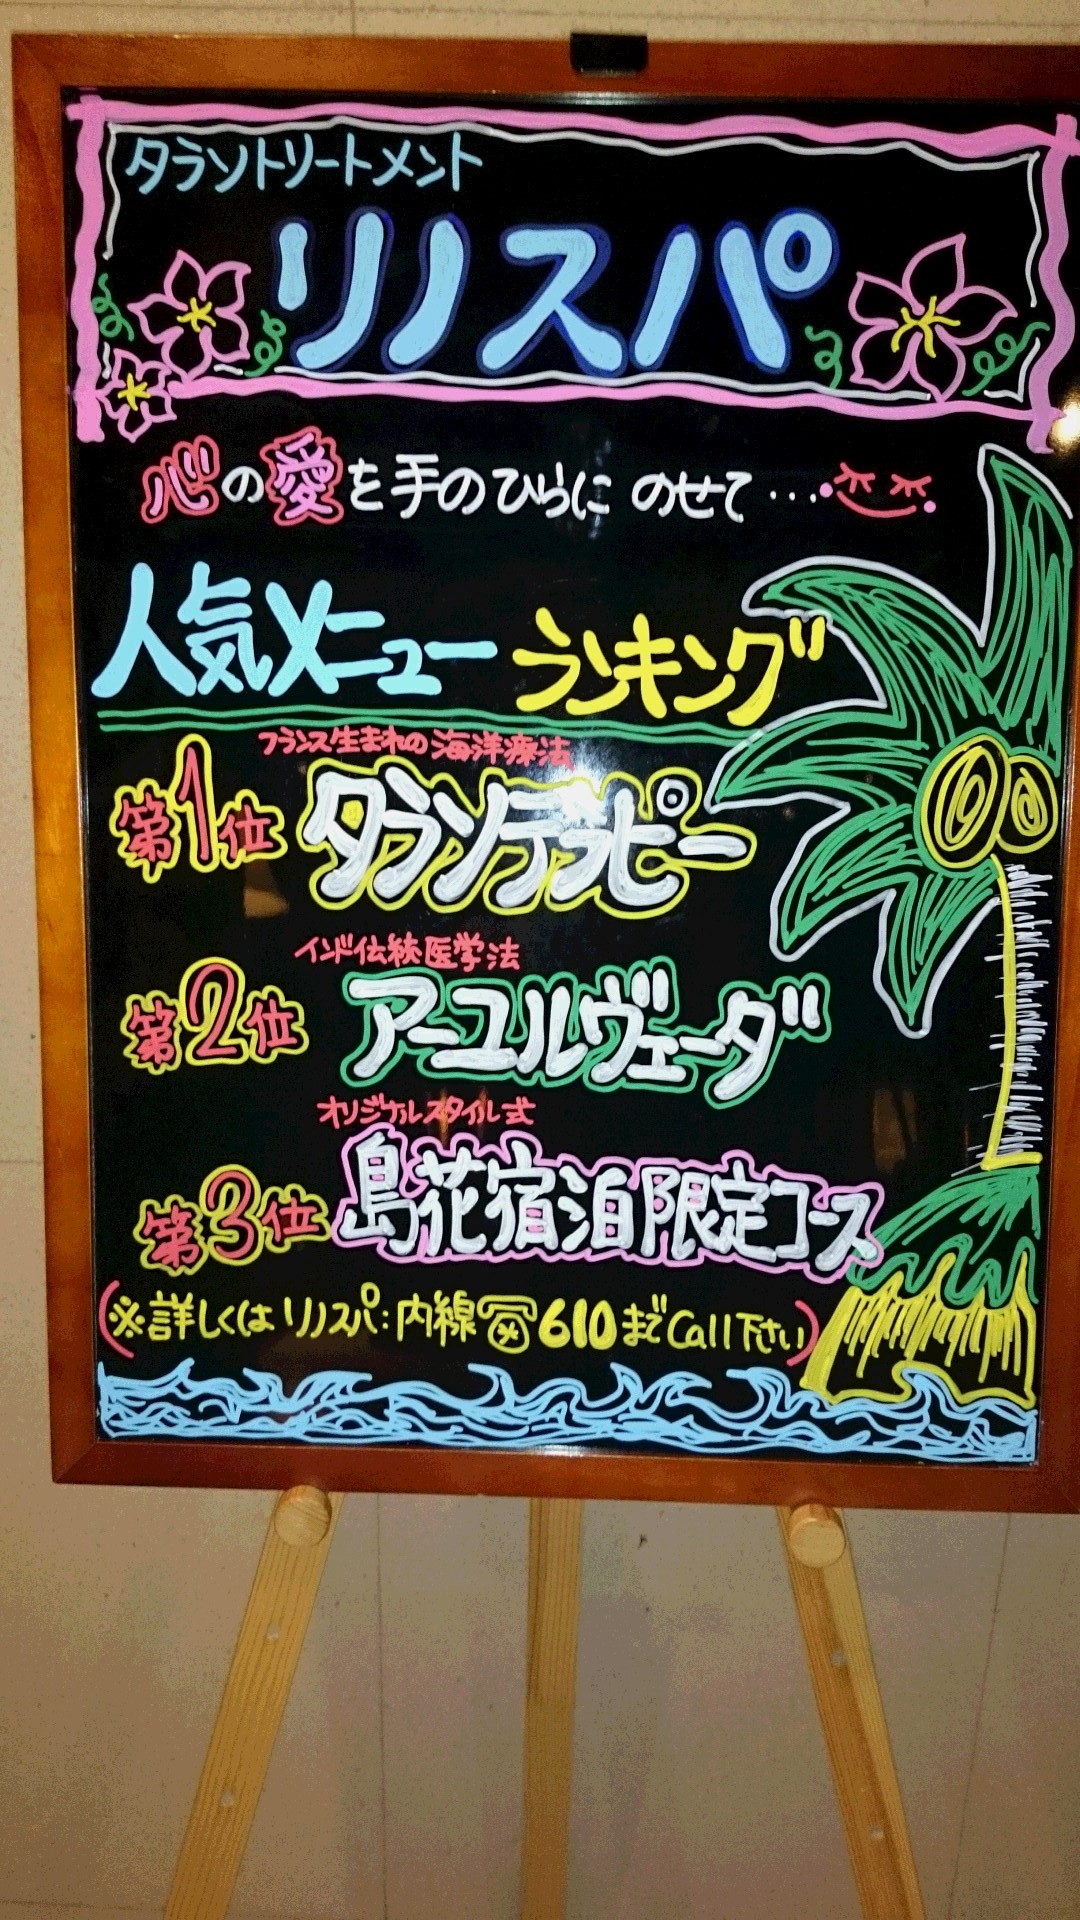 タラソトリートメント
リノスパ
心の愛を手のひらにのせて…
人気メニューランキング
フランス生まれの海洋療法
第1位 タラソテラピー
インド伝統医学法
第2位 アーユルヴェーダ
オリジナルスタイル式
第3位 島花宿泊限定コース
(※詳しくはリノスパ:内線☎610までCall下さい)